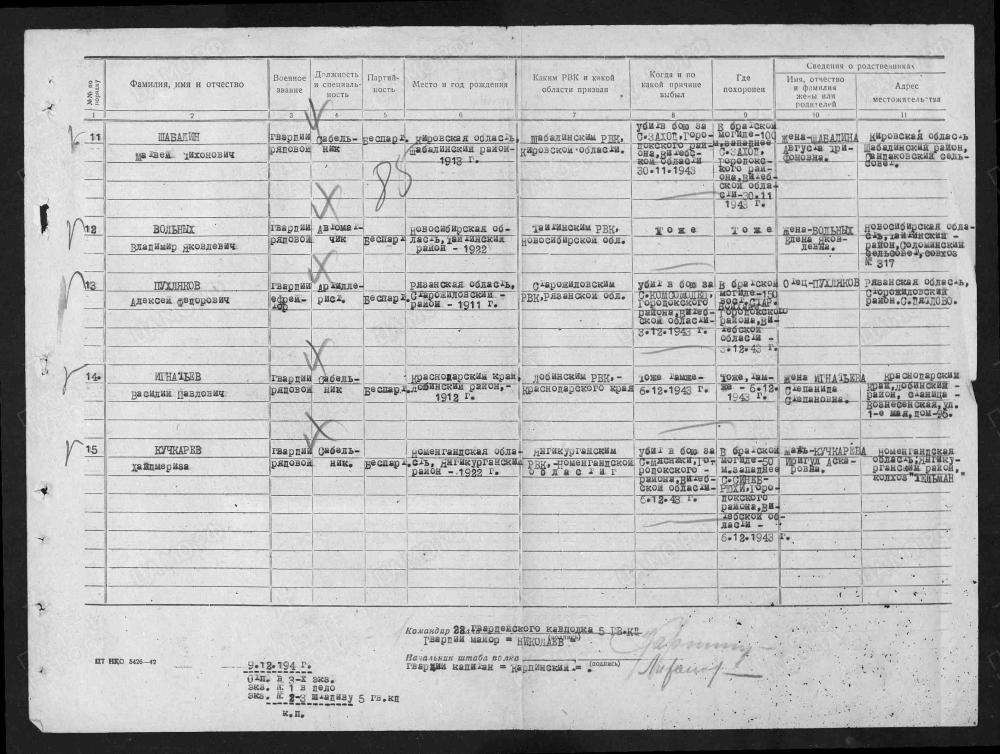 Сведения о родственниках
№№ по порядку
Фамилия, имя и отчество
Военное звание
Должность и специальность
Партийность
Место и год рождения
Каким РВК и какой области призван
Когда и по какой причине выбыл
Где похоронен
Имя, отчество и фамилия жены или родителей
Адрес местожительства
1 2 3 4 5 6 7 8 9 10 11
85
11
ШАБАЛИН
Матвей Тихонович
Гвардии
рядовой
Сабель-
ник
Беспарт.
Кировская область,
Шабалинский район-
1913 г.
Шабалинским РВК,
Кировской области.
убит в бою за
С.ЗАХОД, Горо-
докского рай-
она, Витебс-
кой области
30.11.1943
В братской
могиле-100
м, западнее
С.ЗАХОД,
Городокс-
кого рай-
она, Витеб-
ской обла-
сти-30.11
1943 г.
жена-ШАБАЛИНА
Августа Три-
фоновна.
Кировская область
Шабалинский район,
сель-
совет.
12
ВОЛЬНЫХ
Владимир Яковлевич
Гвардии
рядовой
Автомат-
чик
Беспарт.
Новосибирская об-
ласть, Тайгинский
район - 1922
Тайгинским РВК,
Новосибирской обл.
Т о ж е
Т о ж е
жена-ВОЛЬНЫХ
Елена Яков-
левна.
Новосибирская обла-
сть, Тайгинский -
район, Соломинский
сельсовет, совхоз
№ 317
13
ПУХЛЯКОВ
Алексей Федорович
Гвардии
ефрей-
тор
Артилле-
рист.
Беспарт.
Рязанская область,
Старожиловский -
район - 1911 г.
Старожиловским
РВК, Рязанской обл.
убит в бою за
С.КОМСОМОЛЕЦ,
Городокского
района, Витеб-
ской области-
3.12.1943 г.
В братской
могиле-150
Городокского
района, Ви-
тебской
области -
3.12.43 г.
Отец-ПУХЛЯКОВ
Рязанская область,
Старожиловский
район, С.ПЯТЛОВО.
14.
ИГНАТЬЕВ
Василий Павлович
Гвардии
рядовой
Сабель-
ник
Беспарт.
Краснодарский край,
Лобинский район,-
1912 г.
Лобинским РВК,-
Краснодарского края
Тоже Тамже-
6.12.1943 г.
Тоже, Там-
же - 6.12.
1943 г.
жена ИГНАТЬЕВА
Степанида
Степановна.
Краснодарский
край, Лобинский -
район, станица -
Вознесенская, ул.
1-е мая, дом-
15
КУЧКАРЕВ
Хайдмериза
Гвардии
рядовой
Сабель-
ник.
Беспарт.
Номенгандская обла-
сть, Янгикурганский
район - 1922 г.
Янгикурганским
РВК,-Номенгандской
о б л а с т и
убит в бою за
С.МЯСНИКИ, Го-
родокского -
района, Витеб-
ской области-
6.12.43 г.
В братской
могиле-50
м, западнее
района, Ви-
тебской об-
ласти -
6.12.1943 г.
Мать-КУЧКАРЕВА
Иригул Аска-
ровна.
Номенгандская
область, Янгику-
рганский район,
колхоз "ТЕЛЬМАН"
Командир 22 Гвардейского кавполка 5 ГВ.КД
Гвардии майор = НИКОЛАЕВ = (подпись)
Начальник штаба полка
Гвардии капитан = Карпинский = . (подпись)
ШТ НКО 5426—42
9.12.194 г.
Отп. в 3-х экз.
экз. № 1 в дело
экз. № 2-3 штадиву 5 гв.кд
к.п.